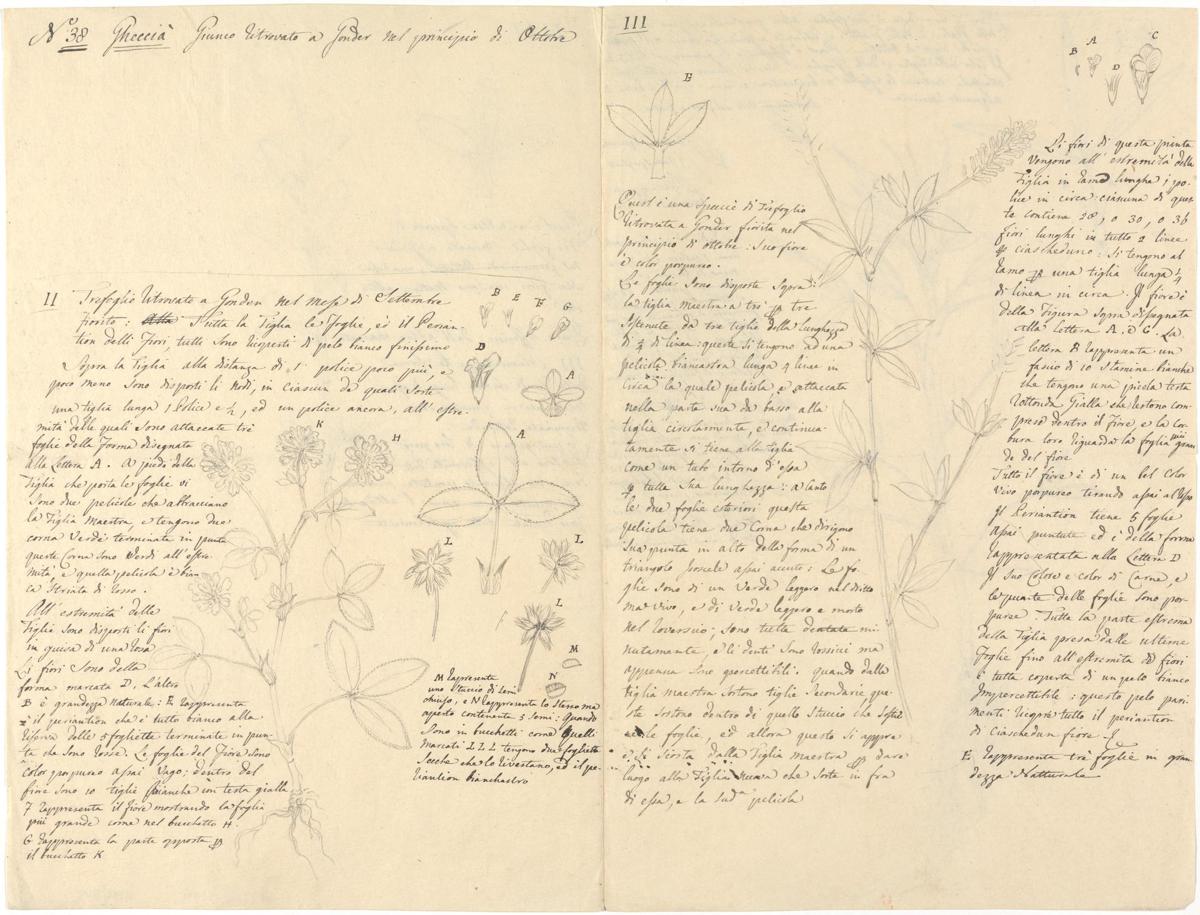 N.º 38 Gheccià Giunco ritrovato a Gonder nel principio di Ottobre
II Trefoglio ritrovato a Gonder nel mese di Settembre
fiorito: Tutta la Tiglia le foglie, ed il Perian-
tion delli Fiori, tutti Sono ricoperti di pelo bianco finissimo
Sopra la Tiglia alla distanza di 1 police poco più, e
poco meno Sono disposti li nodi, in ciascun da quali Sorte
una tiglia lunga 1 Police e ½, ed un police ancora, all' estre-
mità delle quali Sono attaccate tre
foglie della forma disegnata
alla Lettera A. A piedi della
Tiglia che porta le foglie vi
Sono due pelicole che abbracciano
la Tiglia Maestra, e tengono due
corna Verdi terminate in punta
queste Corna sono Verdi all' estre-
mità, e quella pelicola è bian-
ca Striata di rosso.
All' estremità delle
Tiglia Sono disposti li fiori
in guisa di una rosa
Li fiori Sono della
forma marcata D. L'altro
B è grandezza naturale: E rappresenta
il periantion che è tutto bianco alla
riserva delle 5 fogliette terminate in pun-
ta che Sono rosse. Le foglie del Fiore Sono
color porpureo assai Vago; dentro del
fiore Sono 10 tiglie bianche con testa gialla
F rappresenta il fiore mostrando la foglia
più grande come nel bucchetto H.
G rappresenta la parte opposta
il bucchetto K
B E F G
D
A
K H
A
L L
L
M
N
M rappresenta
uno Stuccio di Semi
chiuso, e N rappresenta lo Stesso ma
aperto contenente 5 Semi: Quando
Sono in bucchetti come quelli
marcati L L L tengono due fogliette
Secche che lo rivestano, ed il pe-
riantion bianchastro
III
E
Quest' è una Specie di Trefoglio
ritrovata a Gonder fiorita nel
principio di ottobre: Suo fiore
è color porpureo.
Le foglie Sono disposte Sopra
la tiglia maestra a tre per tre
Sostenute da tre tiglie della lunghezza
di ¾ di linea: queste si tengono ad una
pelicola biancastra lunga 4 linee in
circa la quale pelicola è attaccata
nella parte sua da basso alla
tiglia circolarmente, e continua-
tamente si tiene alla tiglia
come un tubo intorno d'essa
per tutta Sua lunghezza: a canto
le due foglie esteriori questa
pelicola tiene due Corna che dirigono
Sua punta in alto della forma di un
triangolo Isoscele assai acuto: Le fo-
glie Sono di un Verde leggero nel dritto
ma vivo, e di Verde leggero e morto
nel roverscio; Sono tutte dentate mi-
nutamente, e li denti Sono rossicci ma
appena Sono percettibili. quando dalla
tiglia maestra Sortono tiglie Secondarie que-
ste Sortono dentro di quello Stuccio che Sostie-
ne le foglie, ed allora questo Si apre
e Si Scosta dalla Tiglia maestra per dare
luogo alla Tiglia nuova che Sorte in fra
di essa, e la Sud.ª pelicola
A B C D
Li fiori di questa pianta
vengono all' estremità della
Tiglia in ramo lungho 1 po-
lice in circa: ciascuna di que-
ste contiene 28, o 30, o 36
fiori lunghi in tutto 2 linee
per ciascheduno: Si tengono al
ramo per una tiglia lunga ¼
di linea in circa. Il fiore è
della figura Sopra disegnata
alla lettera A. e C. La
lettera D rappresenta un
fascio di 10 Stamine bianche
che tengono una picola testa
rottonda Gialla che restono com-
preso dentro il Fiore, e la cor-
bura loro riguarda la foglia più gran-
de del fiore
Tutto il fiore è di un bel color
Vivo porpureo tirando assai al
Il Periantion tiene 5 foglie
assai puntute ed è della forma
rappresentata alla Lettera D
Il suo Colore è color di Carne, e
le punte delle foglie sono por-
puree. Tutta la parte estrema
della Tiglia presa dalle ultime
foglie fino all' estremità di fiori
è tutta coperta di un pelo bianco
Impercettibile: questo pelo pari-
menti ricopre tutto il periantion
di Ciaschedun fiore.
E rappresenta tre foglie in gran-
dezza Natturale